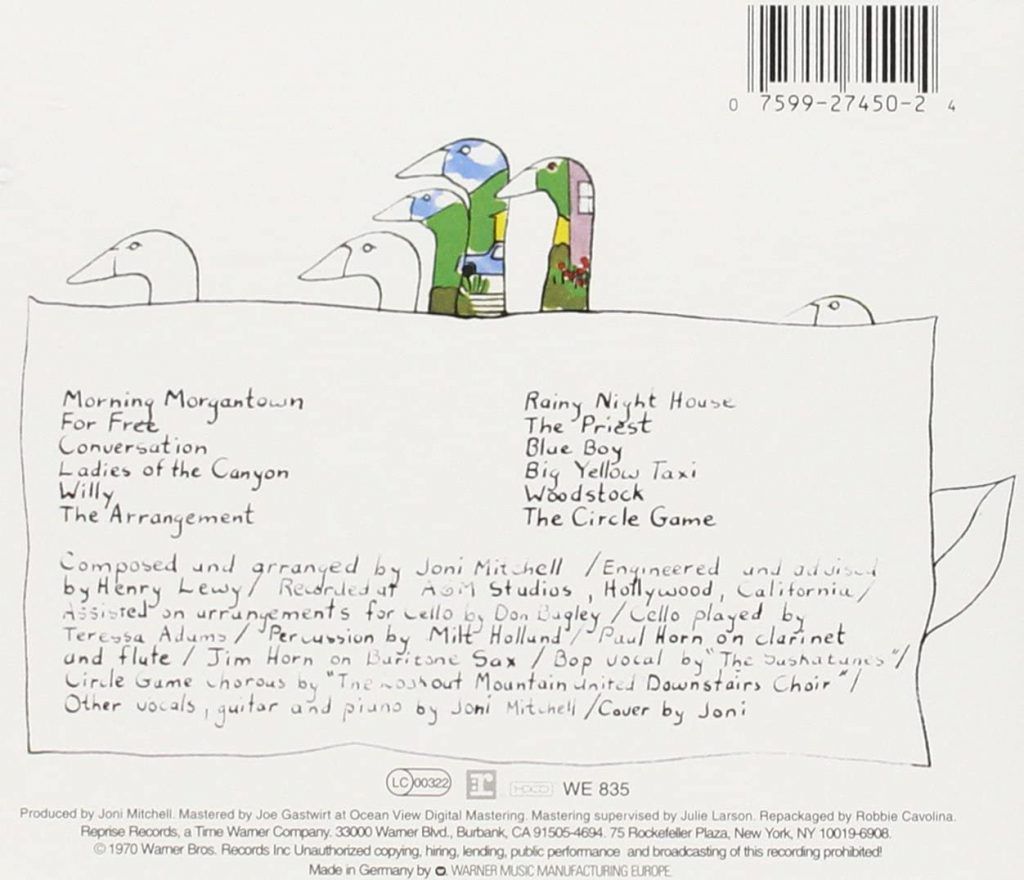 0 7599-27450-2 4
Morning Morgantown
For Free
Conversation
Ladies of the Canyon
Willy
The Arrangement
Rainy Night House
The Priest
Blue Boy
Big Yellow Taxi
Woodstock
The Circle Game
Composed and arranged by Joni Mitchell / Engineered and advised
by Henry Lewy / Recorded at A&M Studios, Hollywood, California /
Assisted on arrangements for cello by Don Bagley / Cello played by
Teressa Adams / Percussion by Milt Holland / Paul Horn on clarinet
and flute / Jim Horn on Baritone Sax / Bop vocal by "The Saskatunes" /
Circle Game chorous by "The Lookout Mountain United Downstairs Choir" /
Other vocals, guitar and piano by Joni Mitchell / Cover by Joni
LC 00322 r HDCD WE 835
Produced by Joni Mitchell. Mastered by Joe Gastwirt at Ocean View Digital Mastering. Mastering supervised by Julie Larson. Repackaged by Robbie Cavolina.
Reprise Records, a Time Warner Company. 33000 Warner Blvd., Burbank, CA 91505-4694. 75 Rockefeller Plaza, New York, NY 10019-6908.
© 1970 Warner Bros. Records Inc Unauthorized copying, hiring, lending, public performance and broadcasting of this recording prohibited!
Made in Germany by WARNER MUSIC MANUFACTURING EUROPE.